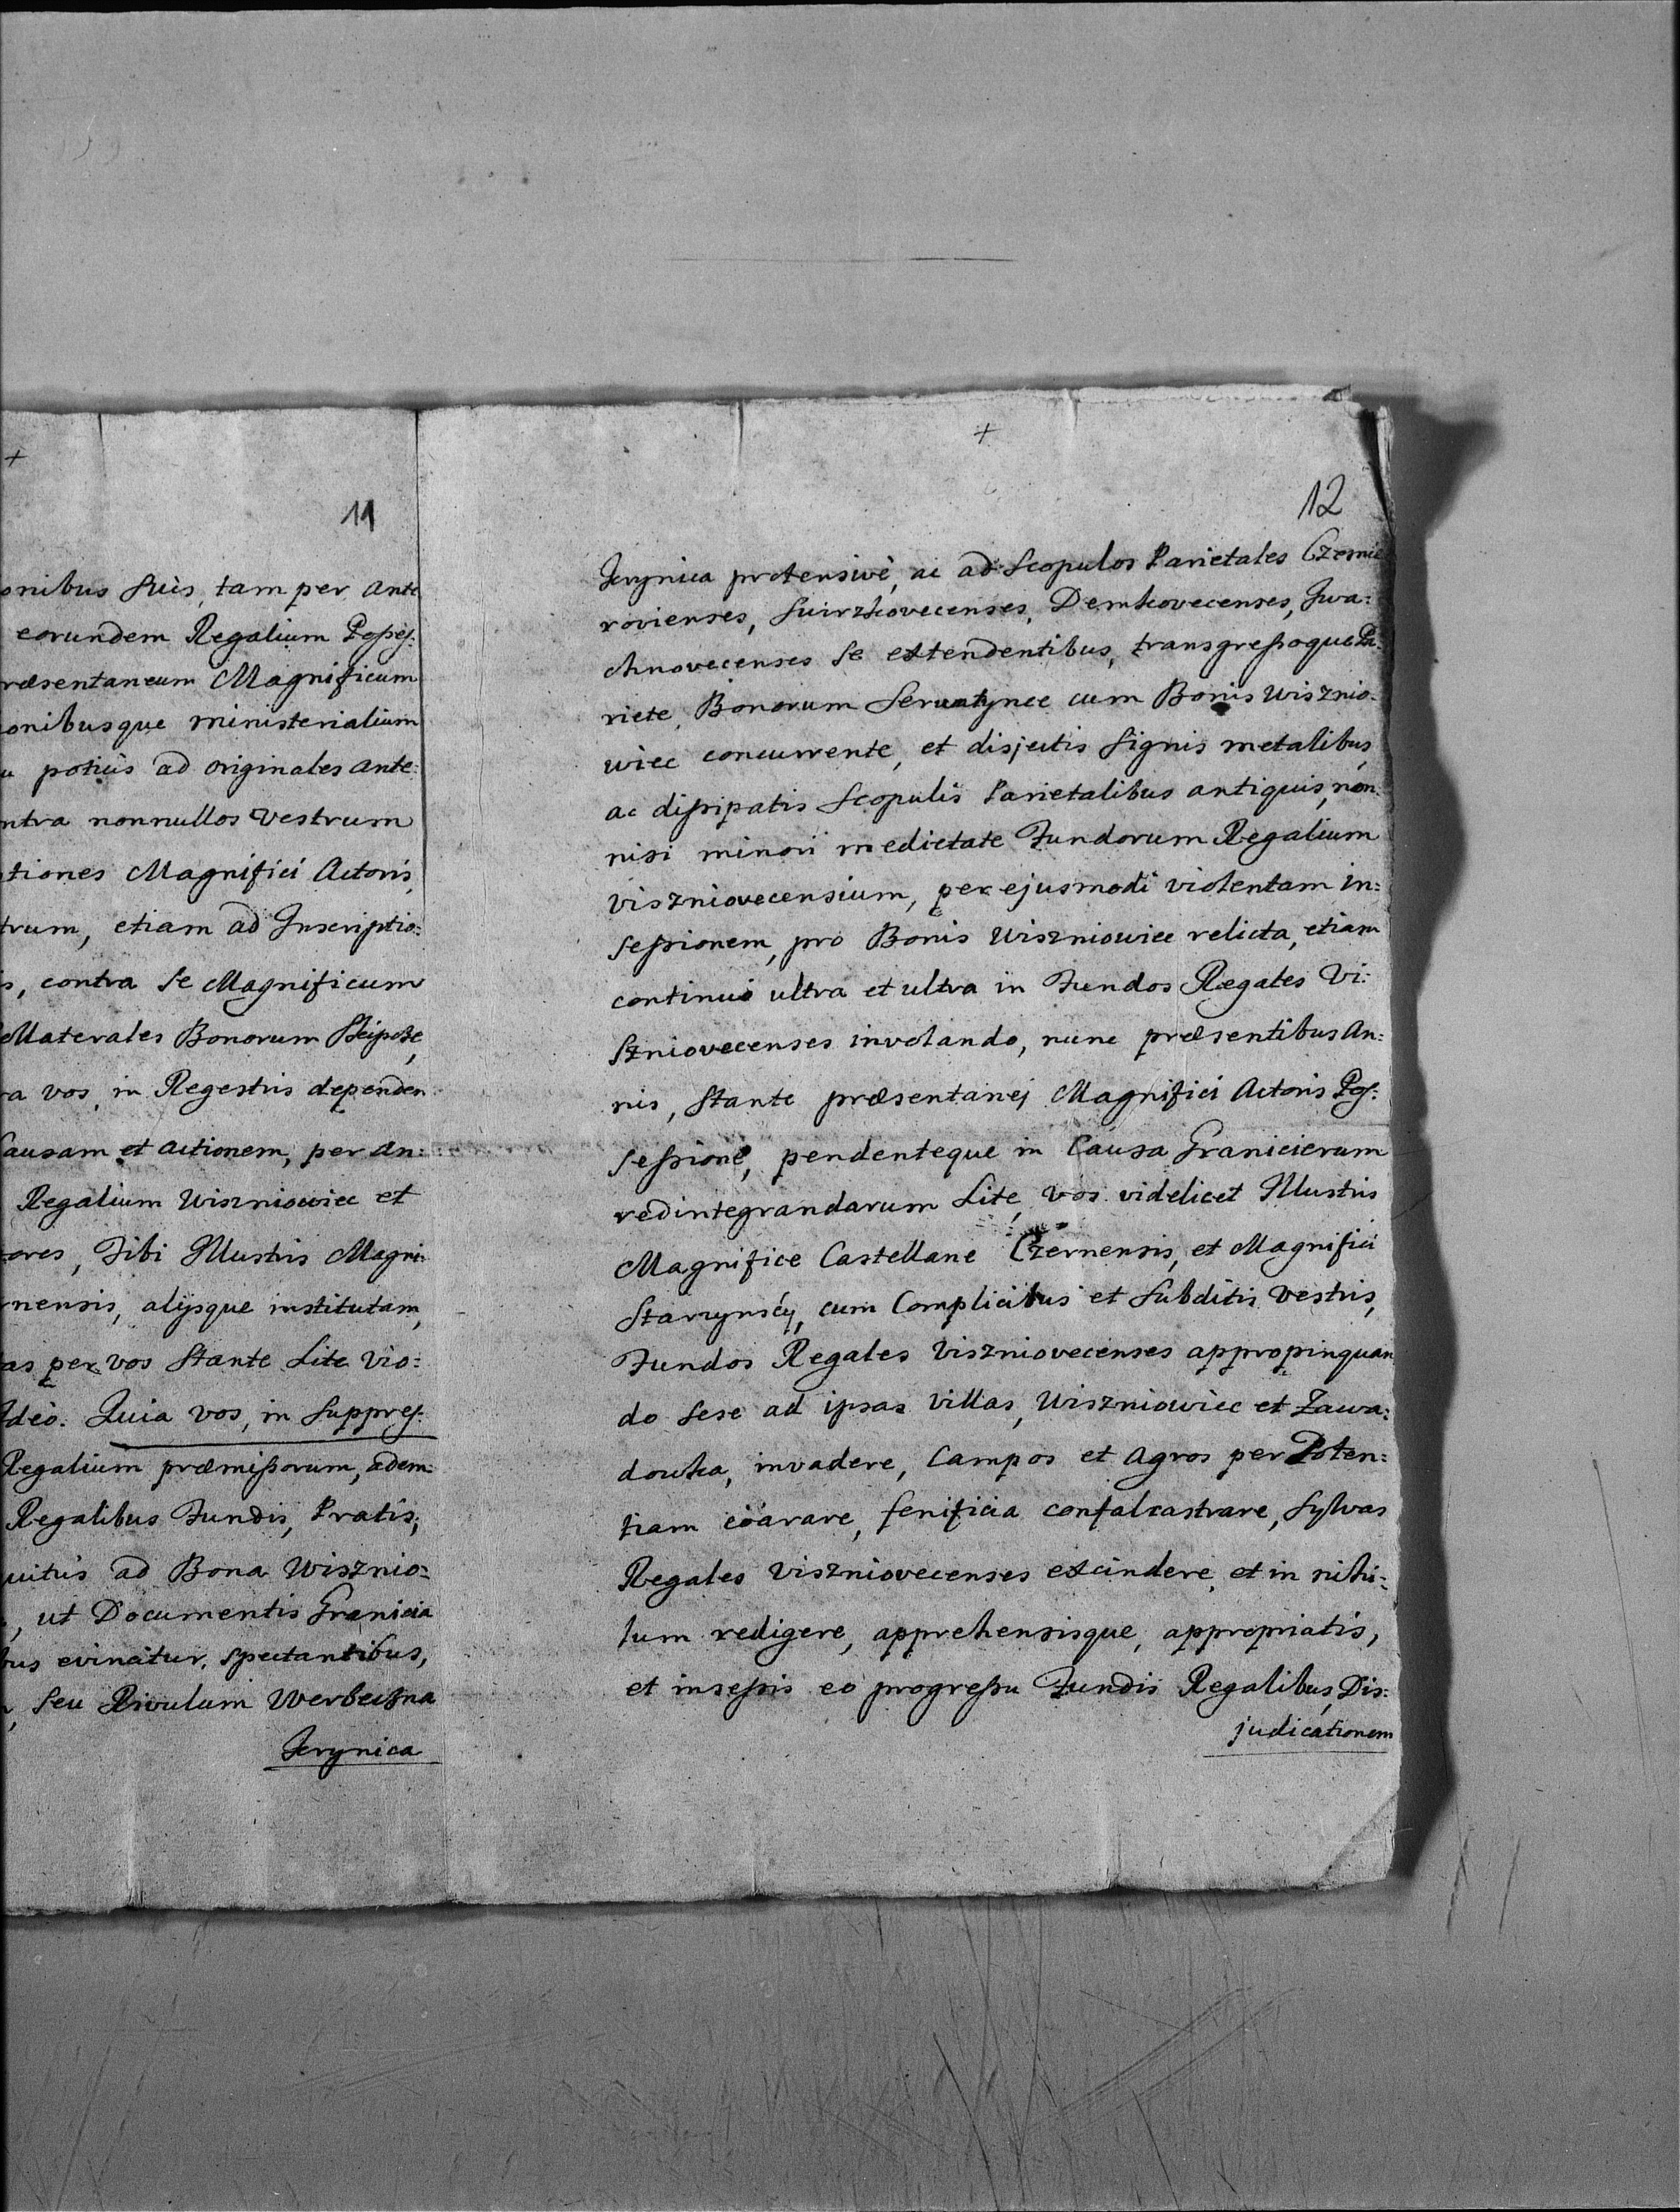 +
11
onibus suis, tam per ante
eorundem Regalium Posses:
ræsentaneum Magnificum
onibusque ministerialium
u potius ad originales ante:
ntra nonnullos vestrum
tiones Magnifici Actoris,
trum, etiam ad Inscriptio:
s, contra se Magnificum
Materales Bonorum
ra vos, in Regestris dependen
Causam et actionem, per An:
Regalium Wiszniowiec et
ores, Tibi Illustris Magni:
rnensis, alijsque institutam,
as per vos stante Lite vio:
Ideò. Quia vos, in suppres:
Regalium præmissorum, adem:
Regalibus Fundis, Pratis,
uitùs ad Bona Wisznio:
, ut Documentis Granicia
bus evincitur, spectantibus,
, seu Rivulum
Jerynica
+
12
Jerynica protensivè, ac ad Scopulos Parietales Czernie
rovienses, Suirzkovecenses, Demkovecenses, Iwa:
chnovecenses se extendentibus, transgressoque Pa:
riete, Bonorum Serwatynce cum Bonis Wisznio:
wiec concurrente, et disjectis signis metalibus,
ac dissipatis Scopulis Parietalibus antiquis, non
nisi minori medietate Fundorum Regalium
Viszniovecensium, per ejusmodi violentam in:
sessionem, pro Bonis Wiszniowiec relicta, etiam
continuò ultra et ultra in Fundos Regales Vi:
szniovecenses involando, nunc præsentibus An:
nis, stante præsentanej Magnifici Actoris Pos:
sessione, pendenteque in Causa Granicierum
redintegrandarum Lite, vos videlicet Illustris
Magnifice Castellane Czernensis, et Magnifici
Starzynscy, cum Complicibus et subditis vestris,
Fundos Regales Viszniovecenses appropinquan
do sese ad ipsas villas, Wiszniowiec et Zawa:
dowka, invadere, Campos et Agros per Poten:
tiam eöarare, fenificia confalcastrare, sylvas
Regales Viszniovecenses excindere, et in nihi:
lum redigere, apprehensisque, appropriatis,
et insessis eo progressu Fundis Regalibus, Dis:
judicationem